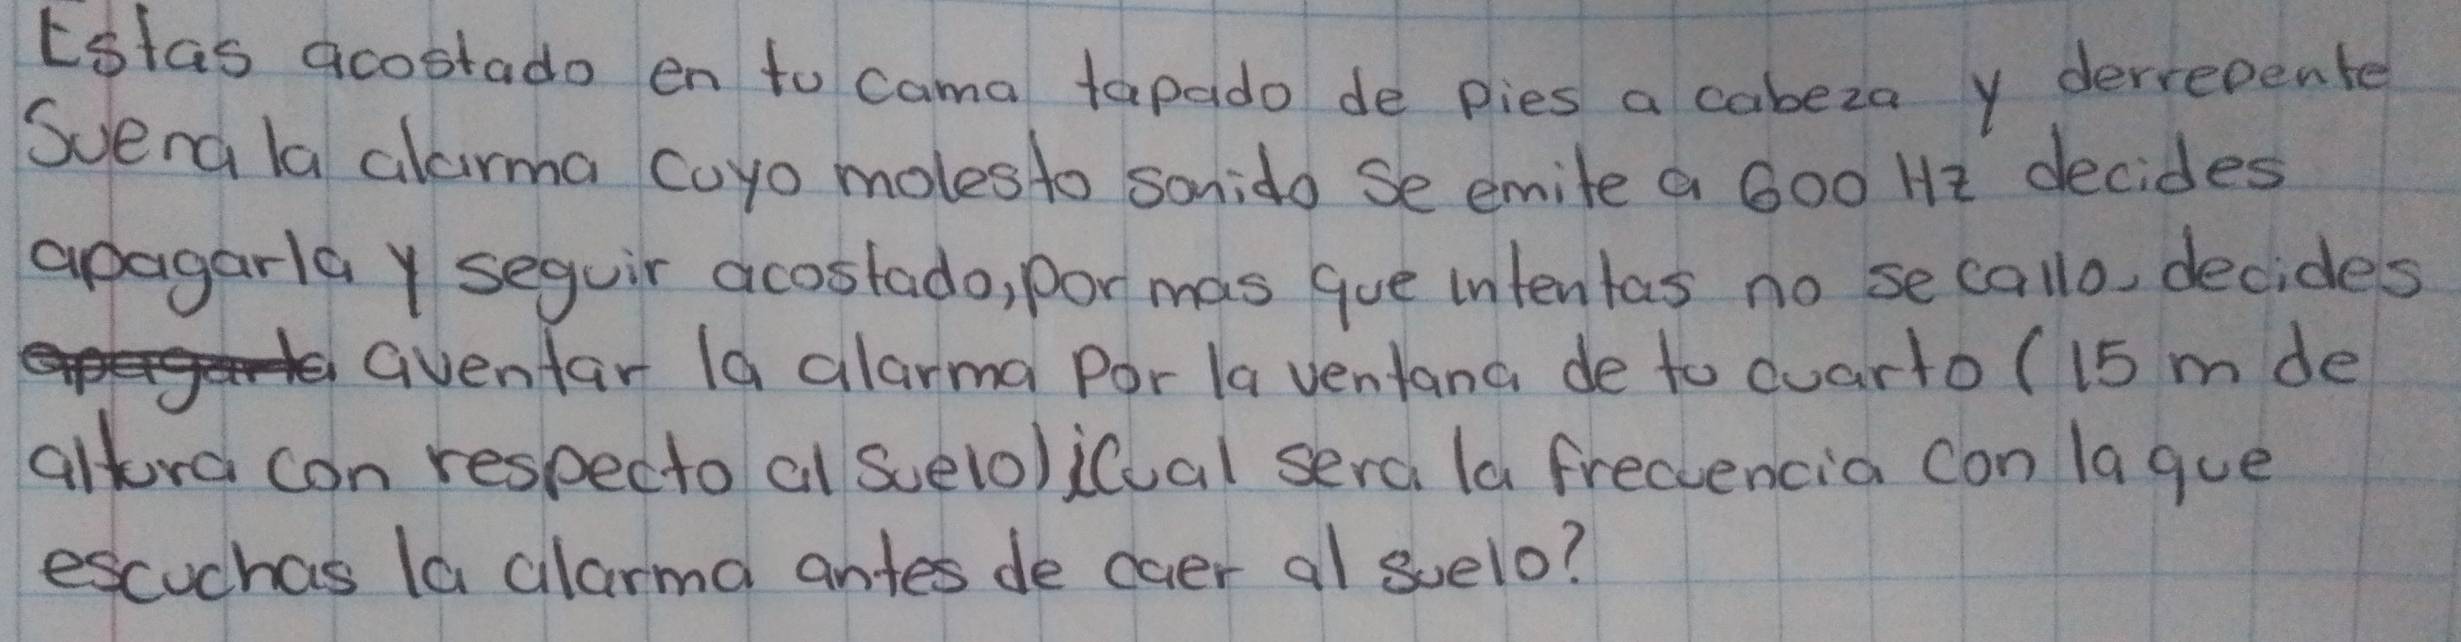 Estas acostado en tu cama tapado de pies a cabeza y derrepente
Suena la alarma cuyo molesto sonido se emite a 600 Hz decides
apagarla y seguir acostado, por mas que intentas no se calla decides
aventar la alarma por la ventana de tu cuarto (15 m de
altura con respecto al suelo) ¿Cual sera la frecuencia con la que
escuchas la alarma antes de caer al suelo?